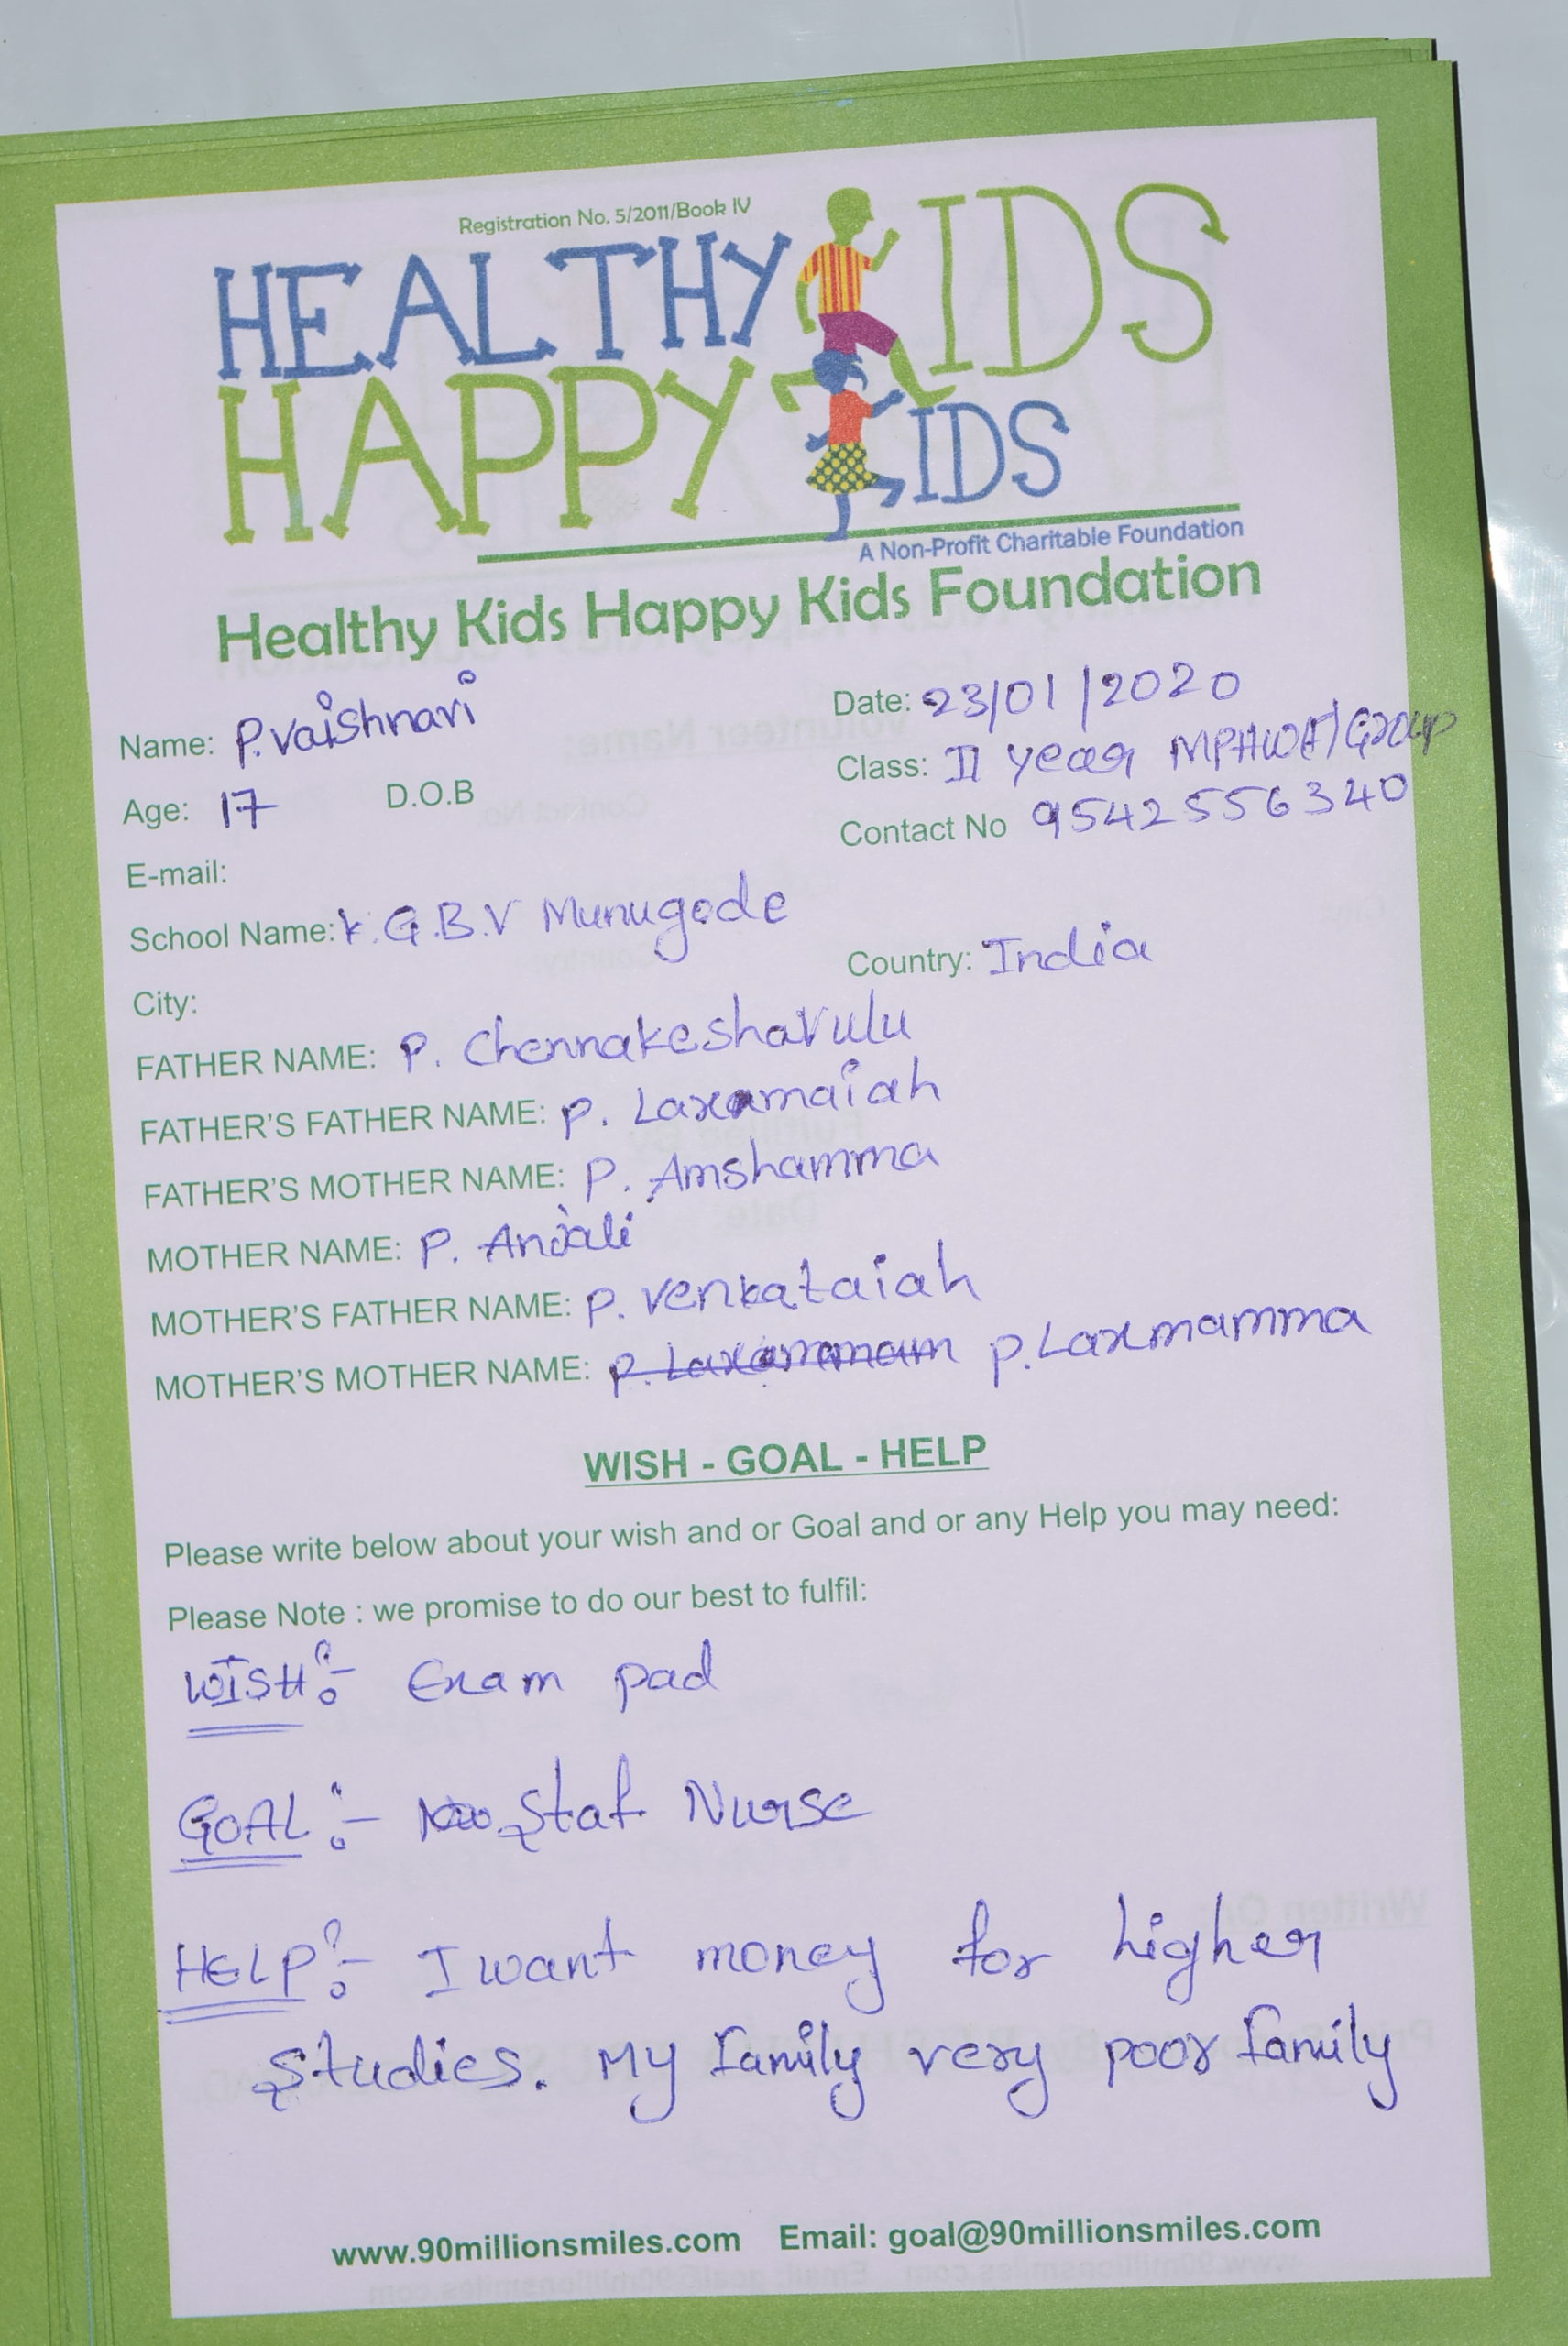 Registration No. 5/2011/Book IV
HEALTHY KIDS
HAPPY KIDS
A Non-Profit Charitable Foundation
Healthy Kids Happy Kids Foundation
Name: P.Vaishnavi Date: 23/01/2020
Age: 17 D.O.B Class: II year MPHW(F) Group
E-mail: Contact No 9542556340
School Name: K.G.B.V Munugode
City: Country: India
FATHER NAME: P. Chennakeshavulu
FATHER'S FATHER NAME: P. Laxamaiah
FATHER'S MOTHER NAME: P. Amshamma
MOTHER NAME: P. Anjali
MOTHER'S FATHER NAME: P. Venkataiah
MOTHER'S MOTHER NAME: P.Laxmamma
WISH - GOAL - HELP
Please write below about your wish and or Goal and or any Help you may need:
Please Note : we promise to do our best to fulfil:
WISH :- Exam pad
GOAL :- Staf Nurse
HELP :- I want money for higher
Studies. My family very poor family
www.90millionsmiles.com Email: goal@90millionsmiles.com